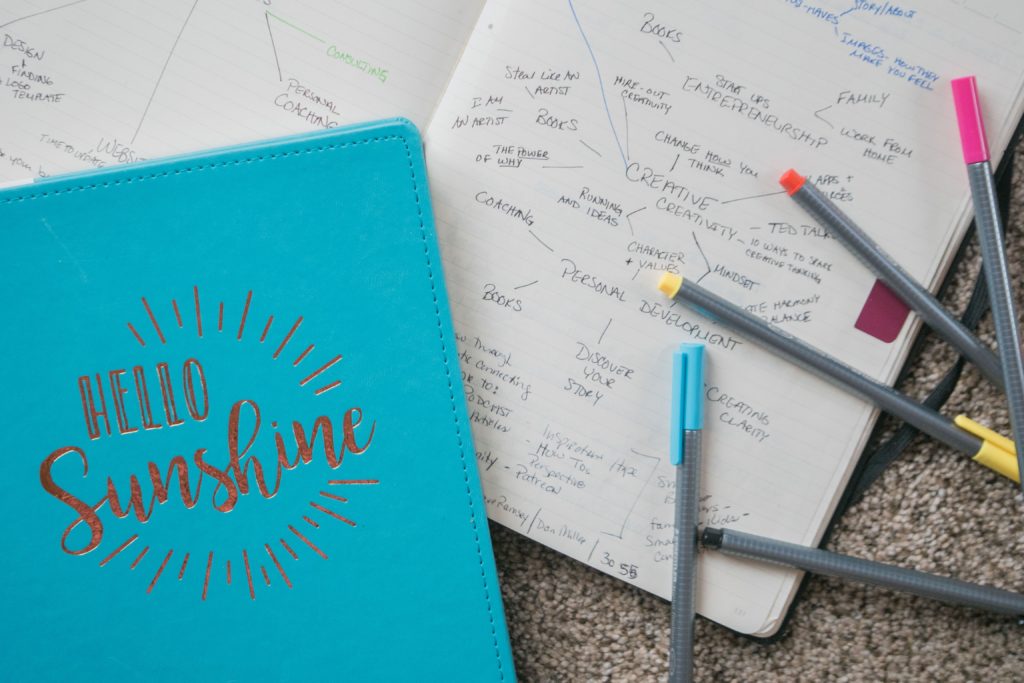 DESIGN
+
FINDING
LOGO
TEMPLATE
CONDUCTING
PERSONAL
COACHING
TIME TO UPDATE
WEBSITE
HELLO
Sunshine
STORY/ABOUT
IMAGES - HOW THEY
MAKE YOU FEEL
BOOKS
START UPS
ENTREPRENEURSHIP
FAMILY
WORK FROM
HOME
STEAL LIKE AN
ARTIST
I AM
AN ARTIST
BOOKS
HIRE-OUT
CREATIVITY
THE POWER
OF WHY
CHANGE HOW YOU
THINK
CREATIVE
CREATIVITY
APPS +
RUNNING
AND IDEAS
TED TALKS
10 WAYS TO SPARK
CREATIVE THINKING
COACHING
CHARACTER
+ VALUES
MINDSET
HARMONY
BALANCE
PERSONAL DEVELOPMENT
BOOKS
DISCOVER
YOUR
STORY
CREATING
CLARITY
Through
Connecting
TO:
PODCAST
Articles
Inspiration
How Tos
Perspective
Patreon
Ramsey / Dan Miller / 30
55